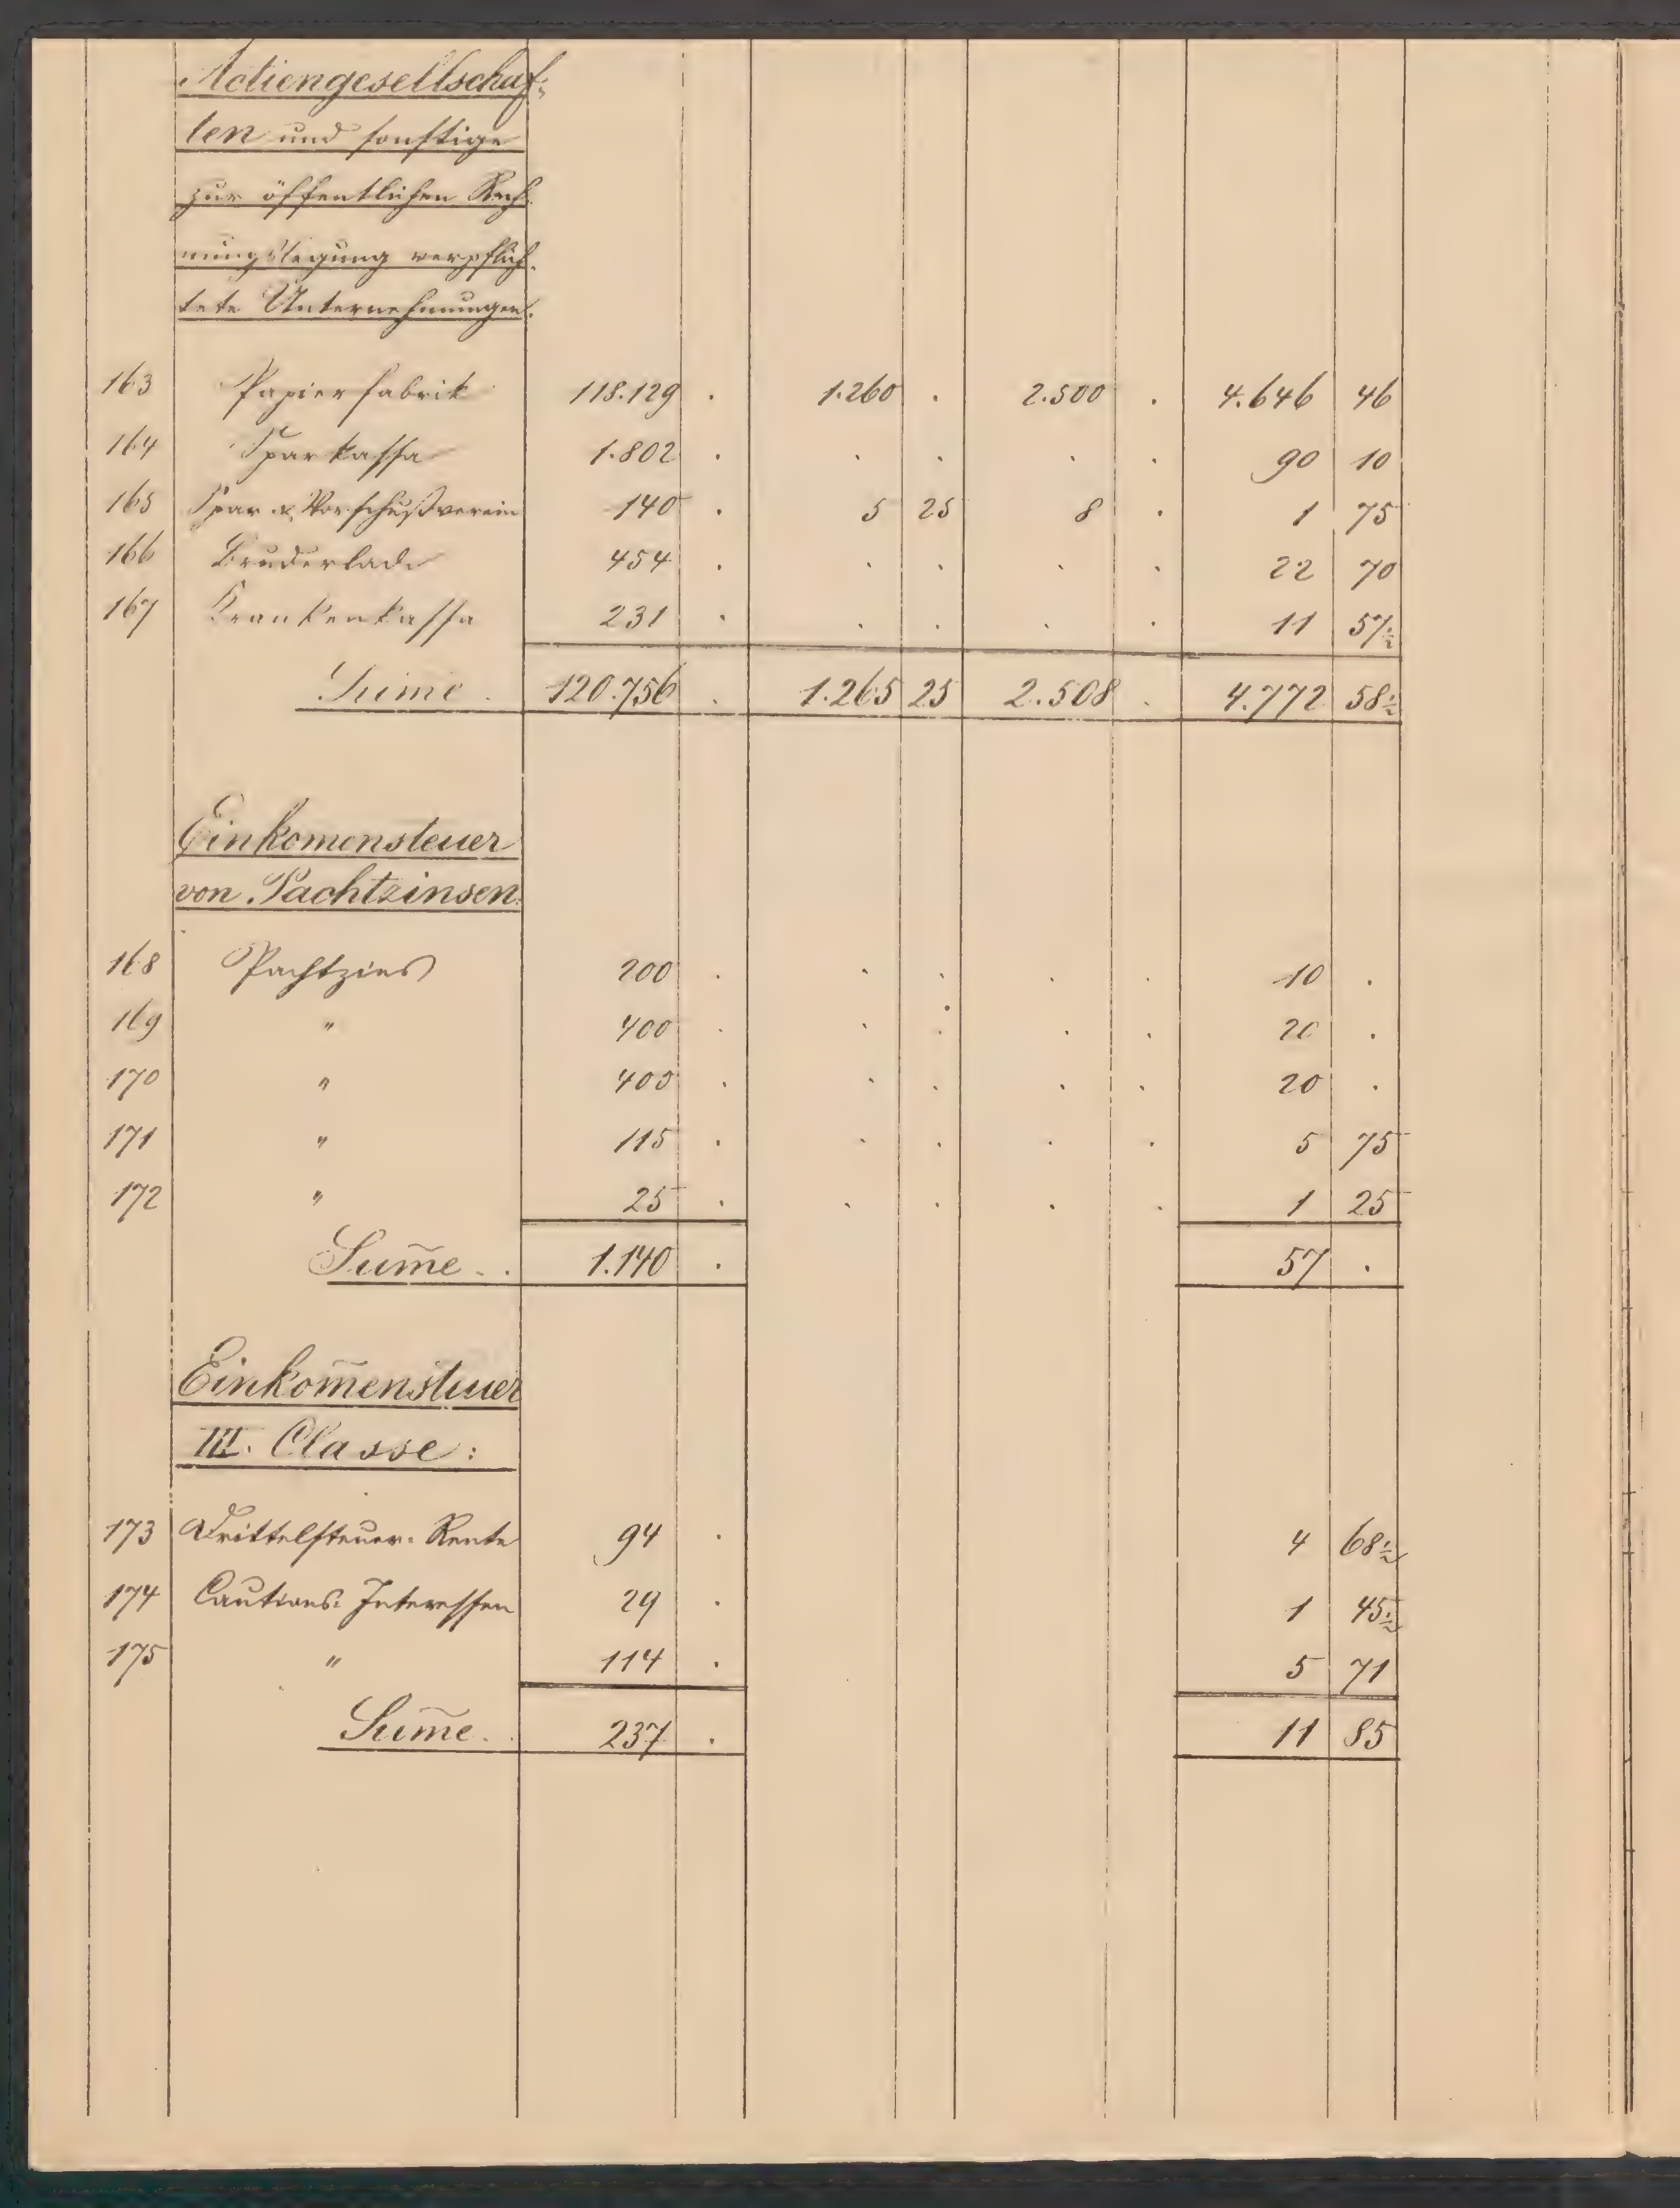 Actiengesellschaf-
ten und sonstige
zur öffentlichen Rech-
nungslegung verpflich-
tete Unternehmungen.
163 Papierfabrik 118.129 . 1.260 . 2.500 . 4.646 46
164 Sparkassa 1.802 . . . . . 90 10
165 Spar & Vorschußverein 140 . 5 25 8 . 1 75
166 Bruderlade 454 . . . . . 22 70
167 Krankenkassa 231 . . . . . 11 57½
Sum̄e . 120.756 . 1.265 25 2.508 . 4.772 58½
Einkomensteuer
von Pachtzinsen.
168 Pachtzins 200 . . . . . 10 .
169 " 400 . . . . . 20 .
170 " 400 . . . . . 20 .
171 " 115 . . . . . 5 75
172 " 25 . . . . . 1 25
Sum̄e . . 1.140 . 57 .
Einkom̄ensteuer
III. Classe:
173 Drittelsteuer-Rente 94 . 4 68½
174 Cautions-Interessen 29 . 1 45½
175 " 114 . 5 71
Sum̄e . . 237 . 11 85